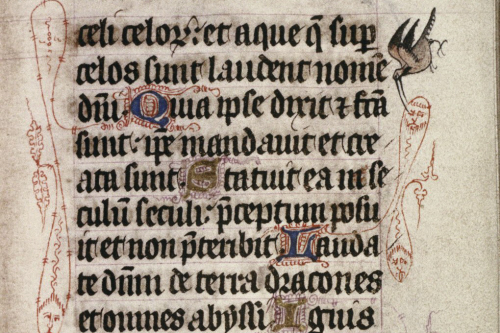 celi celoꝝ: et aque q̄ sup
celos sunt laudent nomē
dn̄i Quia ipse dixit ⁊ fc̄a
sunt: ip̄e mandauit et cre
ata sunt Statuit ea in se
culū seculi: p̄ceptum posu
it et non p̄teribit Lauda
te dn̄m de terra dracones
et omnes abyssi Ignis